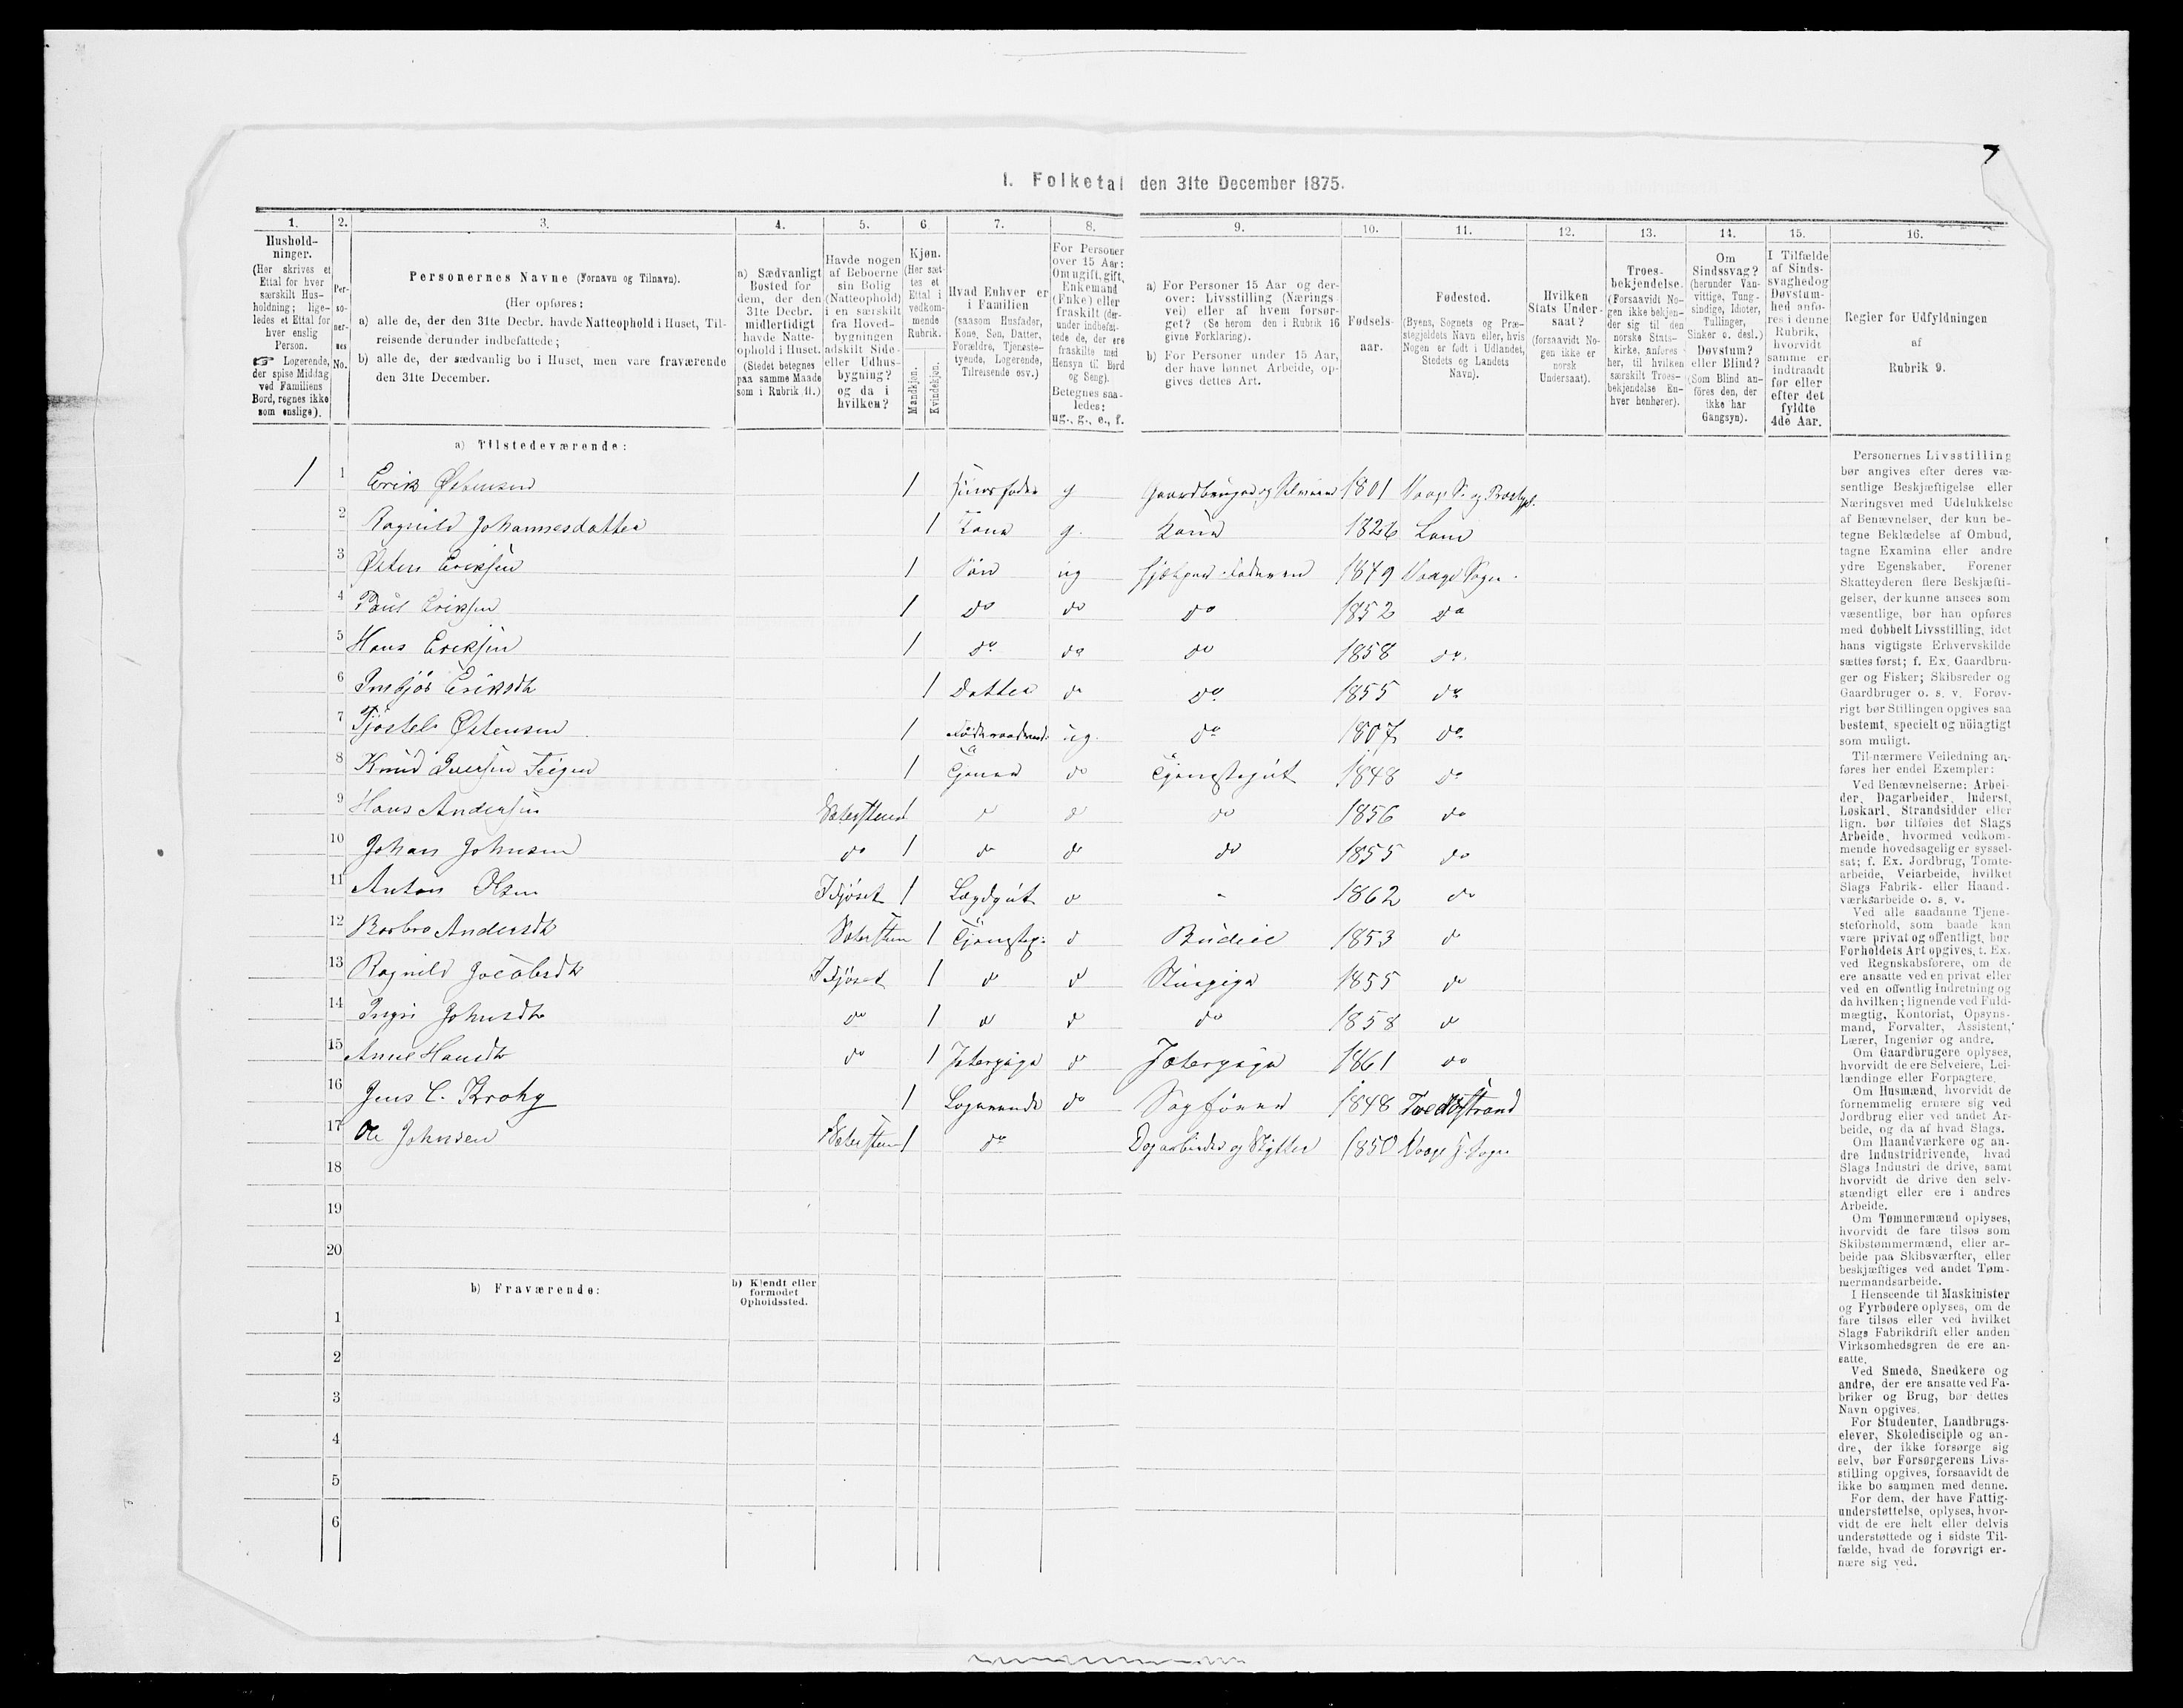 I. Folketal den 31te December 1875.
1. 2. 3. 4. 5. 6. 7. 8. 9. 10. 11. 12. 13. 14. 15. 16.
Hushold-
ninger.
(Her skrives et
Ettal for hver
særskilt Hus-
holdning; lige-
ledes et Ettal for
hver enslig
Person.
☞ Logerende,
der spise Middag
ved Familiens
Bord, regnes ikke
som enslige).
Per-
so-
ner-
nes
No.
Personernes Navne (Fornavn og Tilnavn).
(Her opføres:
a) alle de, der den 31te Decbr. havde Natteophold i Huset, Til-
reisende derunder indbefattede;
b) alle de, der sædvanlig bo i Huset, men vare fraværende
den 31te December.
a) Sædvanligt
Bosted for
dem, der den
31te Decbr.
midlertidigt
havde Natte-
ophold i Huset.
(Stedet betegnes
paa samme Maade
som i Rubrik 11.)
Havde nogen
af Beboerne
sin Bolig
(Natteophold)
i en særskilt
fra Hoved-
bygningen
adskilt Side-
eller Udhus-
bygning?
og da i
hvilken?
Kjøn.
(Her sæt-
tes et
Ettal i
vedkom-
mende
Rubrik.
Mandkjøn.
Kvindekjøn.
Hvad Enhver er
i Familien
(saasom Husfader,
Kone, Søn, Datter,
Forældre, Tjeneste-
tyende, Logerende,
Tilreisende osv.)
For Personer
over 15 Aar:
Om ugift, gift,
Enkemand
(Enke) eller
fraskilt (der-
under indbefat-
tede de, der ere
fraskilte med
Hensyn til Bord
og Seng).
Betegnes saa-
ledes:
ug., g., e., f.
a) For Personer 15 Aar og der-
over: Livsstilling (Nærings-
vei) eller af hvem forsør-
get? (Se herom den i Rubrik 16
givne Forklaring).
b) For Personer under 15 Aar,
der have lønnet Arbeide, op-
gives dettes Art.
Fødsels-
aar.
Fødested.
(Byens, Sognets og Præ-
stegjeldets Navn eller, hvis
Nogen er født i Udlandet,
Stedets og Landets
Navn).
Hvilken
Stats Under-
saat?
(forsaavidt No-
gen ikke er
norsk
Undersaat).
Troes-
bekjendelse.
(Forsaavidt No-
gen ikke bekjen-
der sig til den
norske Stats-
kirke, anføres
her, til hvilken
særskilt Troes-
bekjendelse En-
hver henhører).
Om
Sindssvag?
(herunder Van-
vittige, Tung-
sindige, Idioter,
Tullinger,
Sinker o. desl.)
Døvstum?
eller Blind?
(Som Blind an-
føres den, der
ikke har
Gangsyn).
I Tilfælde
af Sinds-
svaghed og
Døvstum-
hed anfø-
res i denne
Rubrik,
hvorvidt
samme er
indtraadt
før eller
efter det
fyldte
4de Aar.
Regler for Udfyldningen
af
Rubrik 9.
a) Tilstedeværende:
1 1 Erik Østensen 1 Huusfader g Gaardbruger og Selveier 1801 Vaage S. og Præstgjl.
2 Ragnild Johannesdatter 1 Kone g. Kone 1826 Lom
3 Østen Eriksen 1 Søn ug hjælper Faderen 1849 Vaage Sogn.
4 Paul Eriksen 1 do do do 1852 do
5 Hans Eriksen 1 do do do 1858 do.
6 Ingbjør Eriksdtr 1 Datter do do 1855 do
7 Tjøstel Østensen 1 ug. do 1807 do
8 Knud Iversen Teigen 1 Tjener do Tjenestegut 1848 do
9 Hans Andersen 1 do do do 1856 do
10 Johan Johnsen do 1 do do do 1855 do
11 Anton Olsen I Fjøset 1 Lægdgut do - 1862 do
12 Barbro Andersdtr 1 Tjenestep. do Budeie 1853 do
13 Ragnild Jacobsdtr I Fjøset 1 do do 1855 do
14 Ingri Johnsdtr do 1 do do do 1858 do
15 Anne Hansdtr do 1 do 1861 do
16 Jens C. Krohg 1 Logerende do 1848 Tvedestrand
17 Ole Johnsen 1 do Dagarbeider og Skytter 1850 Vaage Sogn
18
19
20
b) Fraværende:
b) Kjendt eller
formodet
Opholdssted.
1
2
3
4
5
6
Personernes Livsstilling
bør angives efter deres væ-
sentlige Beskjæftigelse eller
Næringsvei med Udelukkelse
af Benævnelser, der kun be-
tegne Beklædelse af Ombud,
tagne Examina eller andre
ydre Egenskaber. Forener
Skatteyderen flere Beskjæfti-
gelser, der kunne ansees som
væsentlige, bør han opføres
med dobbelt Livsstilling, idet
hans vigtigste Erhvervskilde
sættes først; f. Ex. Gaardbru-
ger og Fisker; Skibsreder og
Gaardbruger o. s. v. Forøv-
rigt bør Stillingen opgives saa
bestemt, specielt og nöiagtigt
som muligt.
Til nærmere Veiledning an-
føres her endel Exempler:
Ved Benævnelserne: Arbei-
der, Dagarbeider, Inderst,
Løskarl, Strandsidder eller
lign. bør tilføies det Slags
Arbeide, hvormed vedkom-
mende hovedsagelig er syssel-
sat; f. Ex. Jordbrug, Tomte-
arbeide, Veiarbeide, hvilket
Slags Fabrik- eller Haand-
værksarbeide o. s. v.
Ved alle saadanne Tjene-
steforhold, som baade kan
være privat og offentligt, bør
Forholdets Art opgives, t. Ex.
ved Regnskabsførere, om de
ere ansatte ved en privat eller
ved en offentlig Indretning og
da hvilken; lignende ved Fuld-
mægtig, Kontorist, Opsyns-
mand, Forvalter, Assistent,
Lærer, Ingeniør og andre.
Om Gaardbrugere oplyses,
hvorvidt de ere Selveiere, Lei-
lændinge eller Forpagtere.
Om Husmænd, hvorvidt de
fornemmelig ernære sig ved
Jordbrug eller ved andet Ar-
beide, og da af hvad Slags.
Om Haandværkere og an-
dre Industridrivende, hvad
Slags Industri de drive, samt
hvorvidt de drive den selv-
stændigt eller ere i andres
Arbeide.
Om Tømmermænd oplyses,
hvorvidt de fare tilsøs som
Skibstømmermænd, eller ar-
beide paa Skibsværfter, eller
beskjæftiges ved andet Tøm-
mermandsarbeide.
I Henseende til Maskinister
og Fyrbødere oplyses, om de
fare tilsøs eller ved hvilket
Slags Fabrikdrift eller anden
Virksomhedsgren de ere an-
satte.
Ved Smede, Snedkere og
andre, der ere ansatte ved Fa-
briker og Brug, bør dettes
Navn opgives.
For Studenter, Landbrugs-
elever, Skoledisciple og an-
dre, der ikke forsørge sig
selv, bør Forsørgerens Livs-
stilling opgives, forsaavidt de
ikke bo sammen med denne.
For dem, der have Fattig-
understøttelse, oplyses, hvor-
vidt de ere helt eller delvis
understøttede og i sidste Til-
fælde, hvad de forøvrigt er-
nære sig ved.